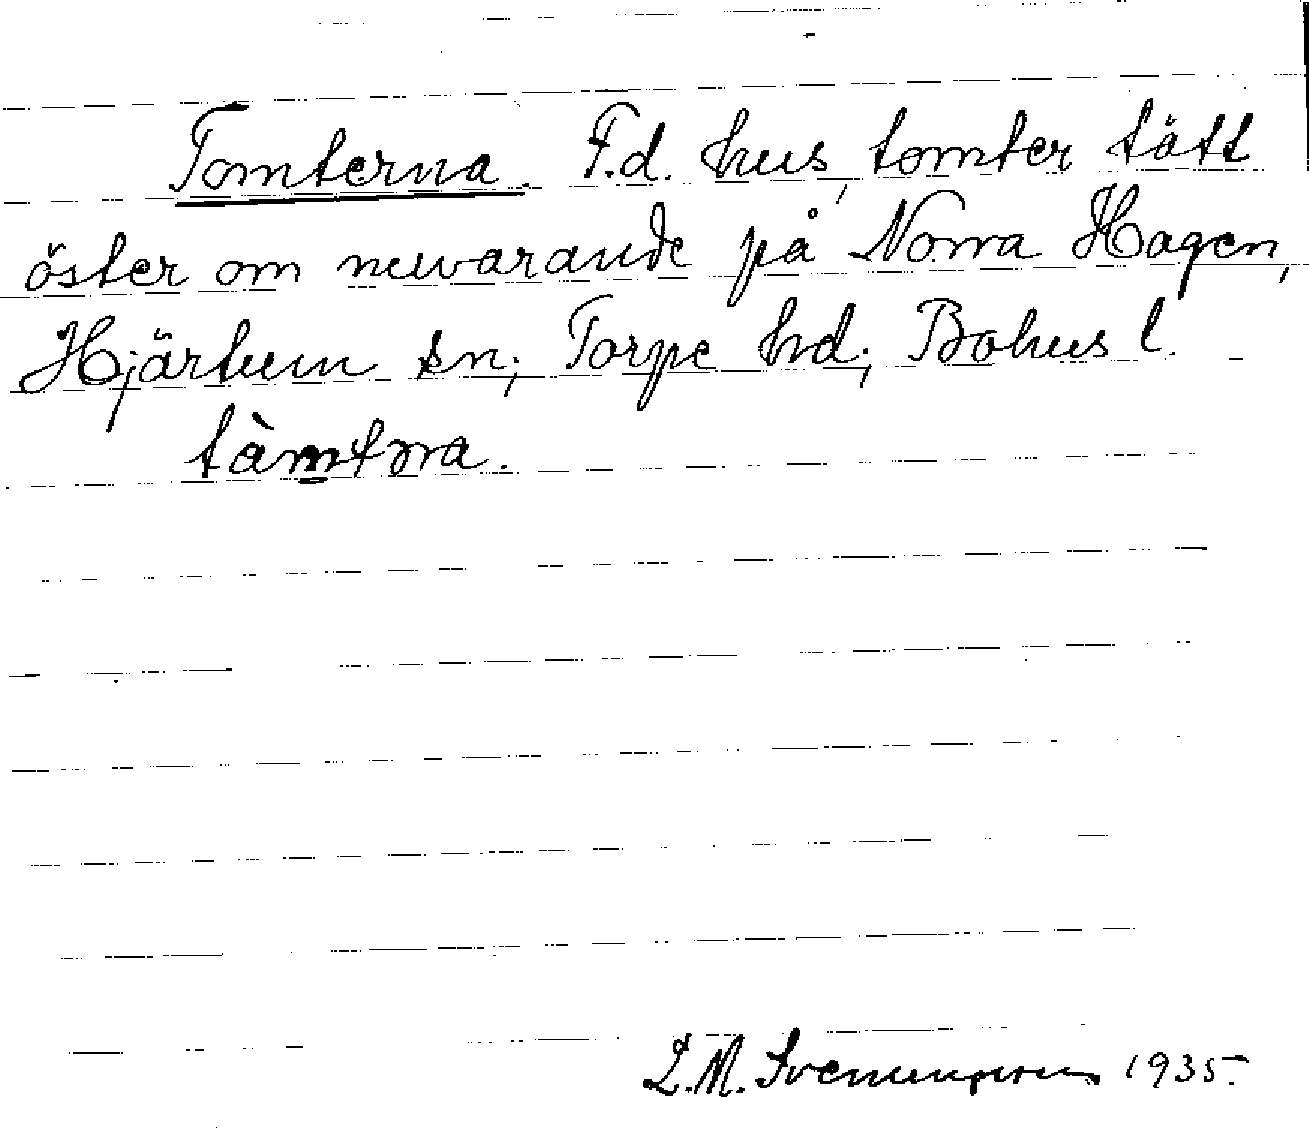 Tomterna. F.d. hus, tomter tätt
öster om nuvarande på Norra Hagen,
Hjärtum sn; Torpe hd; Bohus l.
tàmtɳa.
L.M. Svenungsson 1935.